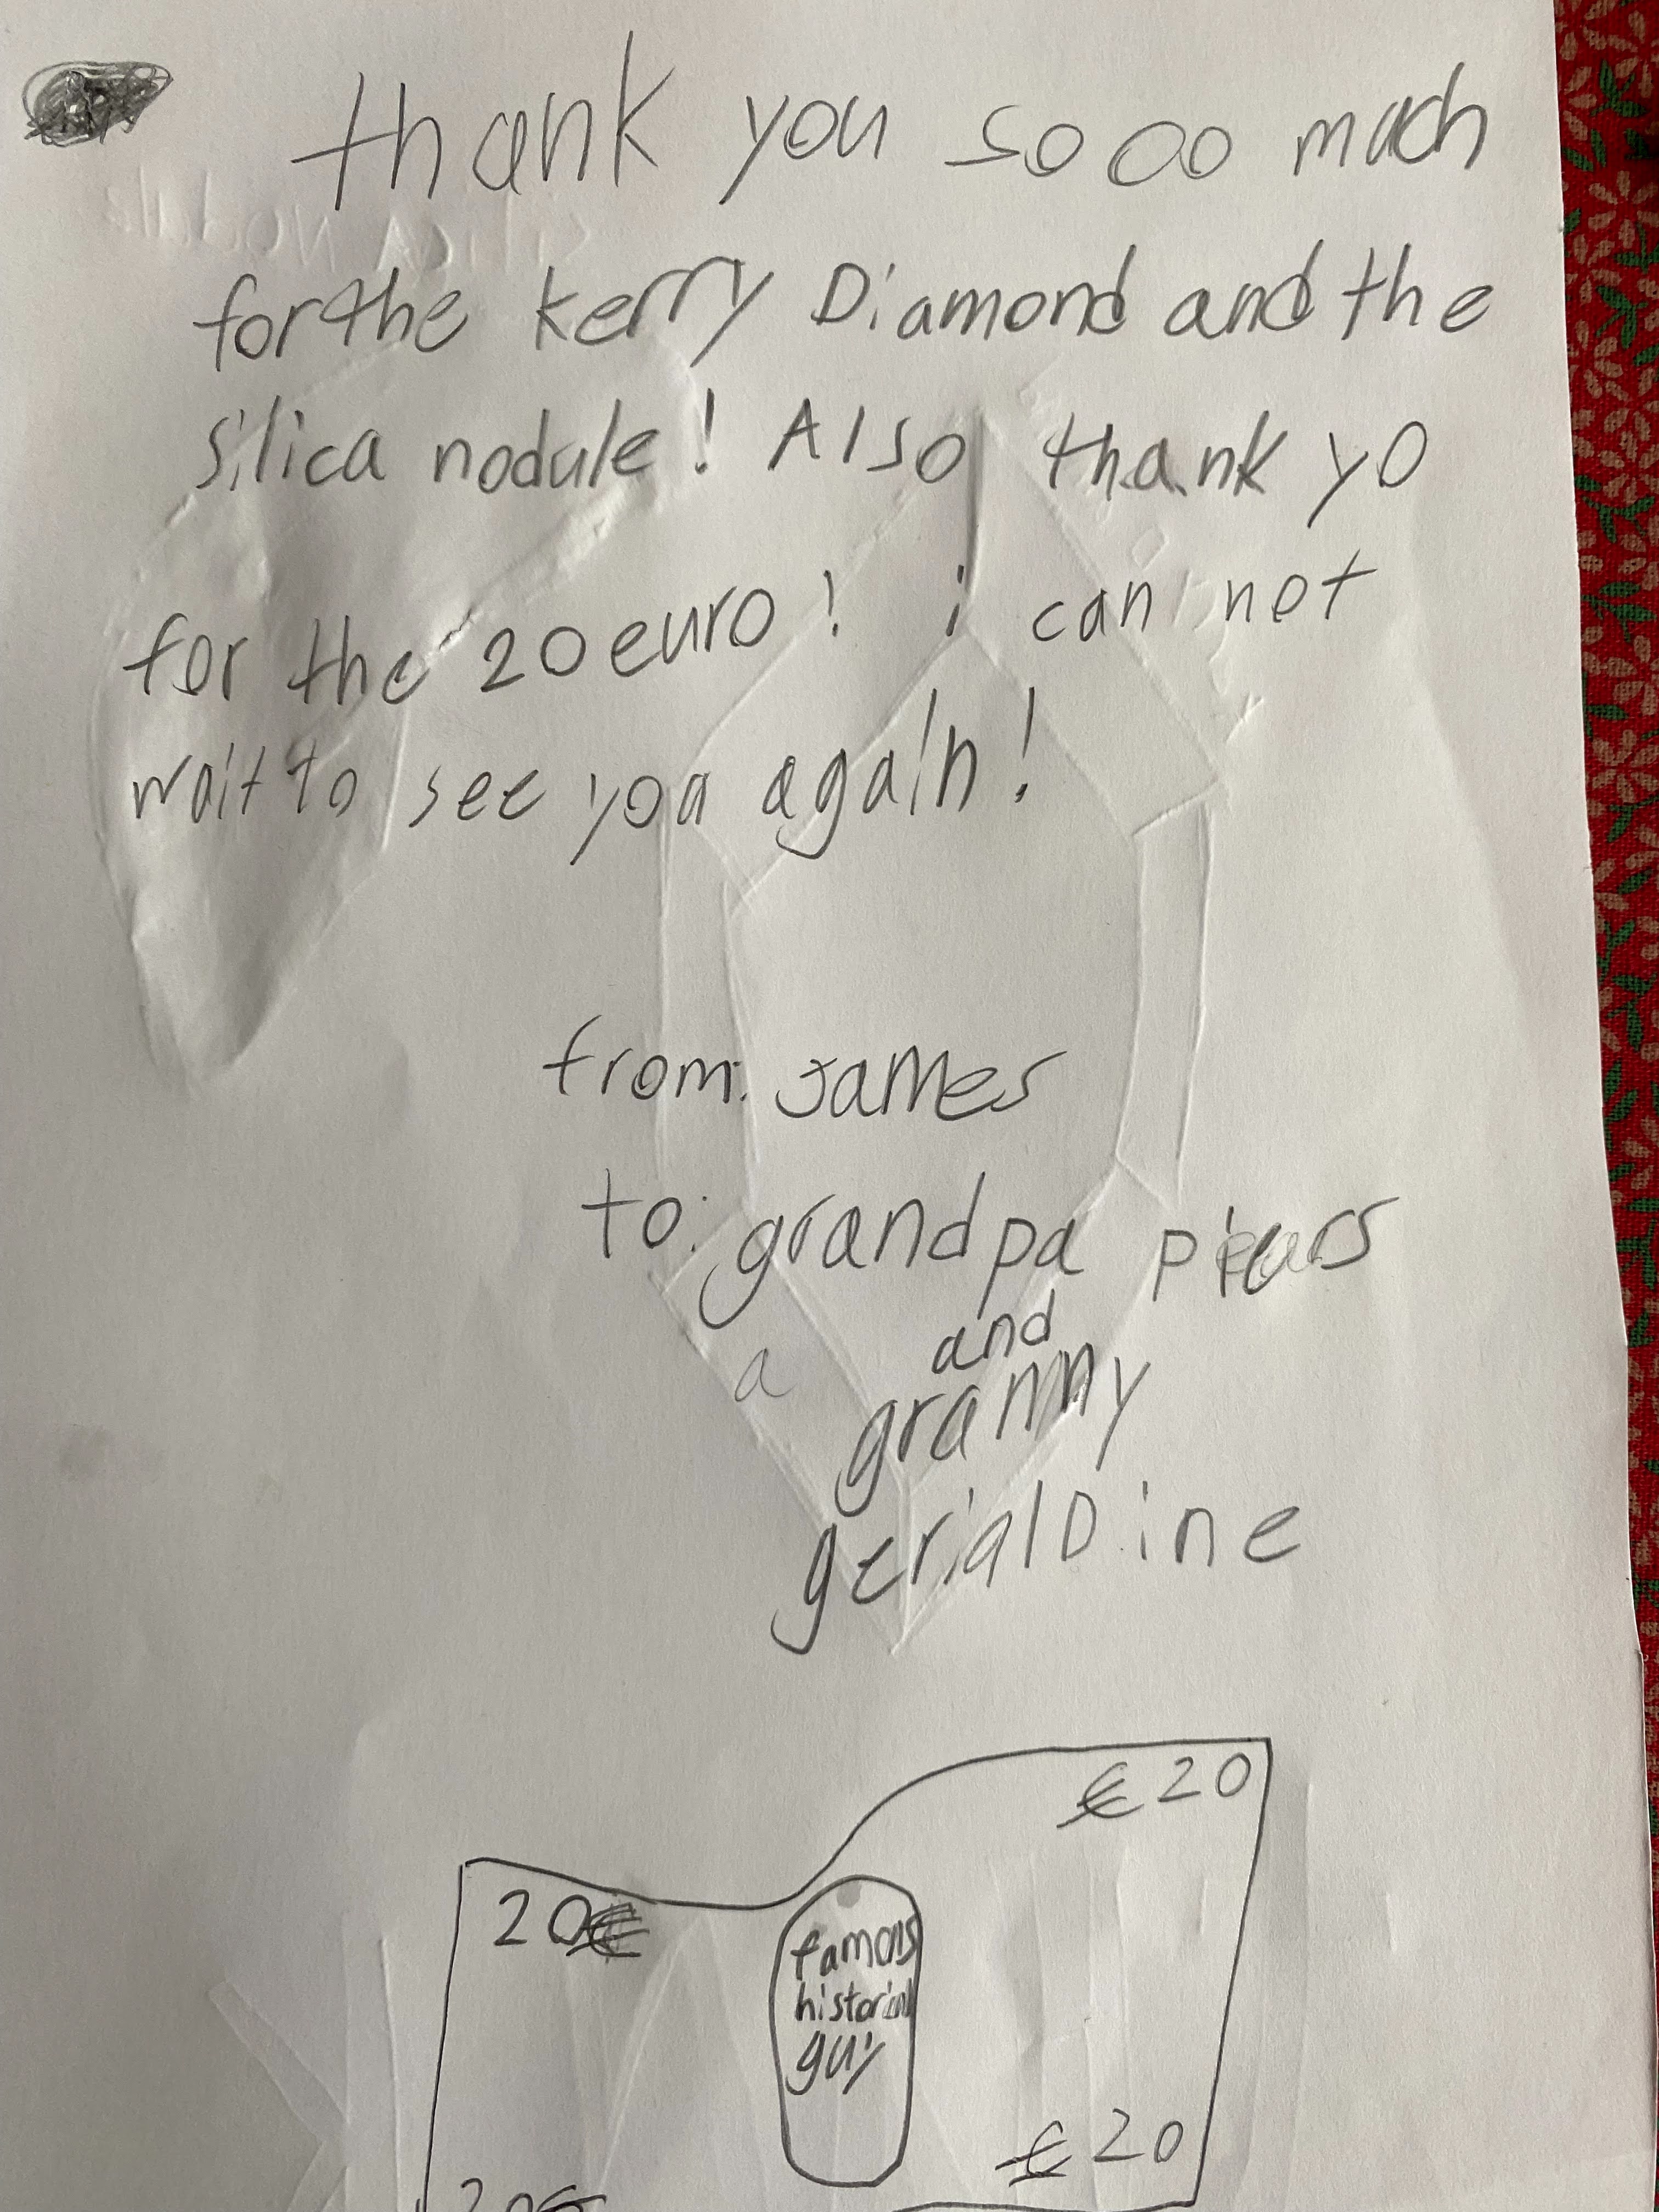 thank you so ooo much
for the kerry Diamond and the
silica nodule! Also thank yo
for the 20 euro! i can not
wait to see you again!
from: James
to: grandpa piears
and
a
granny
gerialDine
€20
20€
famous
historical
guy
€20
20€